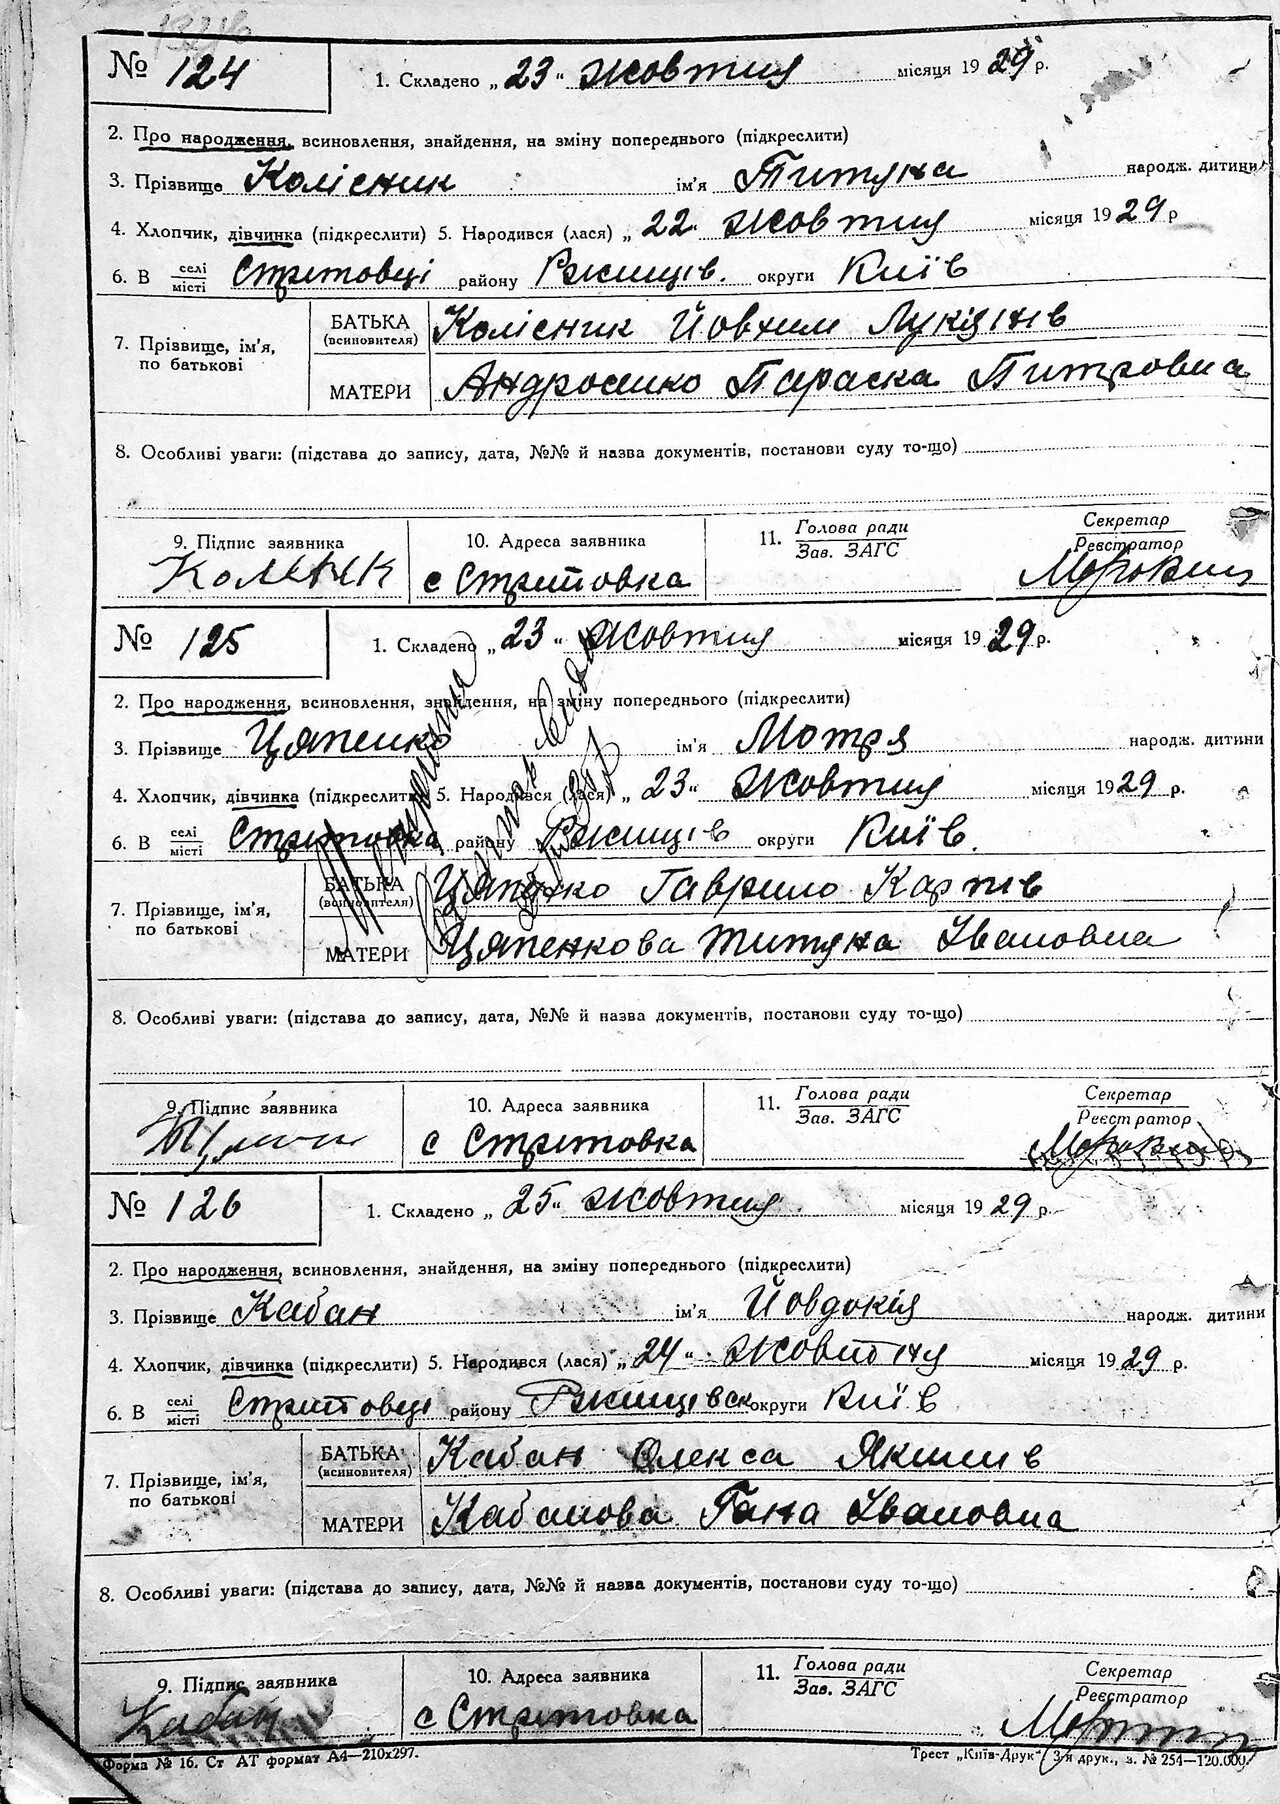 № 124
1. Складено „ 23 “ жовтня місяця 19 29 р.
2. Про народження, всиновлення, знайдення, на зміну попереднього (підкреслити)
3. Прізвище Колісник ім'я Титяна народж. дитини
4. Хлопчик, дівчинка (підкреслити) 5. Народився (лася) „ 22 “ жовтня місяця 19 29 р
6. В селі місті Стритовці району Ржищів. округи Київ
7. Прізвище, ім'я, по батькові
БАТЬКА (всиновителя) Колісник Йовхим Лукіянів
МАТЕРИ Андросенко Параска Питровна
8. Особливі уваги: (підстава до запису, дата, №№ й назва документів, постанови суду то-що)
9. Підпис заявника 10. Адреса заявника 11. Голова ради Зав. ЗАГС Секретар Реєстратор
с Стритовка
№ 125
1. Складено „ 23 “ жовтня місяця 19 29 р.
2. Про народження, всиновлення, знайдення, на зміну попереднього (підкреслити)
3. Прізвище Цяпенко ім'я Мотря народж. дитини
4. Хлопчик, дівчинка (підкреслити) 5. Народився (лася) „ 23 “ жовтня місяця 19 29 р.
6. В селі місті Стритовка району Ржищів округи Київ.
7. Прізвище, ім'я, по батькові
БАТЬКА (всиновителя) Цяпенко Гаврило Карпів
МАТЕРИ Цяпенкова Титяна Івановна
8. Особливі уваги: (підстава до запису, дата, №№ й назва документів, постанови суду то-що)
9. Підпис заявника 10. Адреса заявника 11. Голова ради Зав. ЗАГС Секретар Реєстратор
с Стритовка
№ 126
1. Складено „ 25 “ жовтня місяця 19 29 р.
2. Про народження, всиновлення, знайдення, на зміну попереднього (підкреслити)
3. Прізвище Кабан ім'я Йовдокія народж. дитини
4. Хлопчик, дівчинка (підкреслити) 5. Народився (лася) „ 24 “ жовтня місяця 19 29 р.
6. В селі місті Стритовці району Ржищівск округи Київ
7. Прізвище, ім'я, по батькові
БАТЬКА (всиновителя) Кабан Олекса Якимів
МАТЕРИ Кабанова Гана Івановна
8. Особливі уваги: (підстава до запису, дата, №№ й назва документів, постанови суду то-що)
9. Підпис заявника 10. Адреса заявника 11. Голова ради Зав. ЗАГС Секретар Реєстратор
Кабан с Стритовка
Форма № 16. Ст АТ формат А4—210х297. Трест „Київ-Друк“ 3-я друк., з. № 254—120.000.